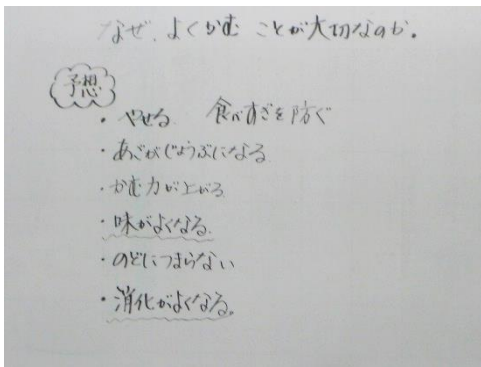 なぜ、よくかむ ことが大切なのか。
予想
・やせる 食べすぎを防ぐ
・あごがじょうぶになる
・かむ力が上がる
・味がよくなる
・のどにつまらない
・消化がよくなる。